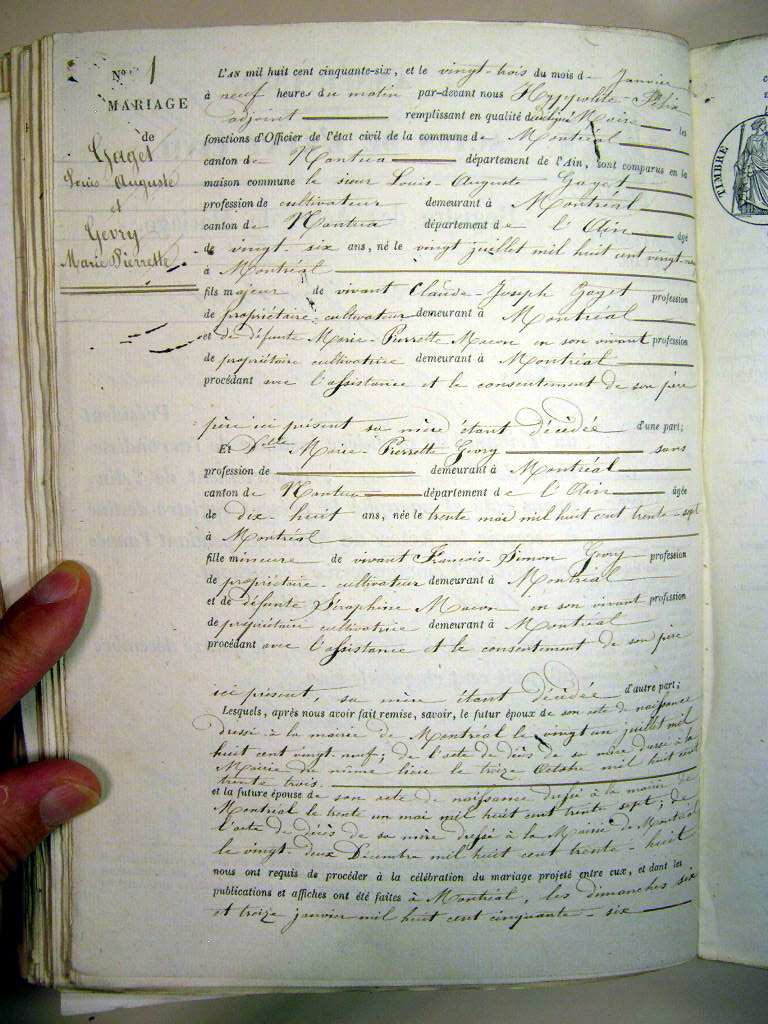 N° 1
MARIAGE
de
Gaget
Louis Auguste
et
Gevry
Marie Pierrette
L'AN mil huit cent cinquante-six, et le vingt-trois du mois de Janvier
à neuf heures du matin par-devant nous Hyppolite
adjoint remplissant en qualité de Maire les
fonctions d'Officier de l'état civil de la commune de Montréal
canton de Nantua département de l'Ain, sont comparus en la
maison commune le sieur Louis-Auguste Gaget
profession de cultivateur demeurant à Montréal
canton de Nantua département de l'Ain âgé
de vingt-six ans, né le vingt juillet mil huit cent vingt-neuf
à Montréal
fils majeur de vivant Claude-Joseph Gaget profession
de propriétaire-cultivateur demeurant à Montréal
et de défunte Marie-Pierrette Macon en son vivant profession
de propriétaire cultivatrice demeurant à Montréal
procédant avec l'assistance et le consentement de son père
père ici présent sa mère étant décédée d'une part;
Et Dlle Marie-Pierrette Gevry sans
profession de demeurant à Montréal
canton de Nantua département de l'Ain âgée
de dix-huit ans, née le trente mai mil huit cent trente-sept
à Montréal
fille mineure de vivant François Simon Gevry profession
de propriétaire-cultivateur demeurant à Montréal
et de défunte Séraphine Macon en son vivant profession
de propriétaire cultivatrice demeurant à Montréal
procédant avec l'assistance et le consentement de son père
ici présent, sa mère étant décédée d'autre part;
Lesquels, après nous avoir fait remise, savoir, le futur époux de son acte de naissance
dressé à la mairie de Montréal le vingt un juillet mil
huit cent vingt-neuf; de l'acte de décès de sa mère dressé à la
Mairie du même lieu le treize Octobre mil huit cent
trente trois.
et la future épouse de son acte de naissance dressé à la mairie de
Montréal le trente un mai mil huit cent trente sept; de
l'acte de décès de sa mère dressé à la Mairie de Montréal
le vingt-deux Décembre mil huit cent trente-huit
nous ont requis de procéder à la célébration du mariage projeté entre eux, et dont les
publications et affiches ont été faites à Montréal, les dimanches six
et treize janvier mil huit cent cinquante-six
TIMBRE